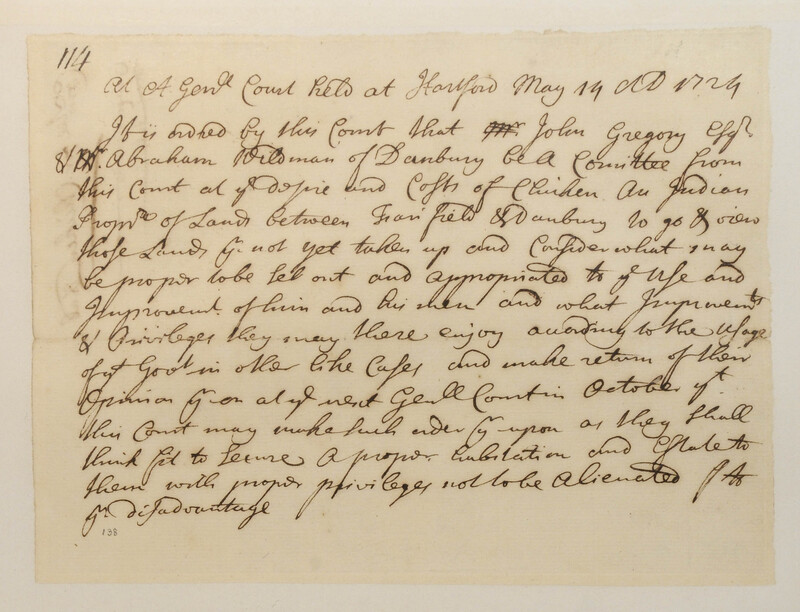 114
At A Genll Court held at Hartford May 14 AD 1724
It is ordred by this Court that John Gregory Esqr
& Mr. Abraham Wildman of Danbury be A Comittee from
this Court at ye desire and Costs of Chicken An Indian
Proprr of Lands between Fairfield & Danbury to go & view
those Lands yr not yet taken up and Consider what may
be proper tobe Set out and appropriated to ye Use and
Improvemt. of him and his men and what Improvemts
& Priviledges they may there enjoy according to the Usage
of ys Govt in other like Cases and make return of their
Opinion yr on at ye next Genll Court in October yt
this Court may make such order yr upon as they shall
think fit to Secure A proper habitation and Estate to
them with proper privileges not to be Alienated to
yr disadvantage
138